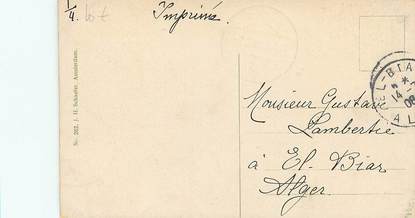 1/4.
Imprimé
No. 262. J. H. Schaefer. Amsterdam.
EL-BIAR
14-
08
AL
Monsieur Gustave
Lambertie
à El. Biar
Alger.